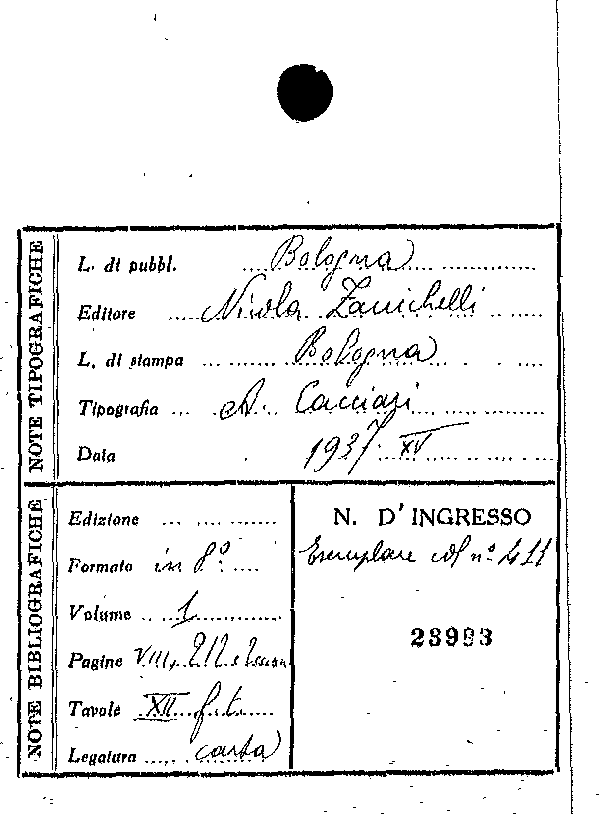 NOTE TIPOGRAFICHE
L. di pubbl. Bologna
Editore Nicola Zanichelli
L. di stampa Bologna
Tipografia A. Cacciari
Data 1937 XV
NOTE BIBLIOGRAFICHE
Edizione
Formato in 8°
Volume 1
Pagine VIII, 212 e
Tavole XII f. t.
Legatura carta
N. D'INGRESSO
Esemplare col n° 411
23993